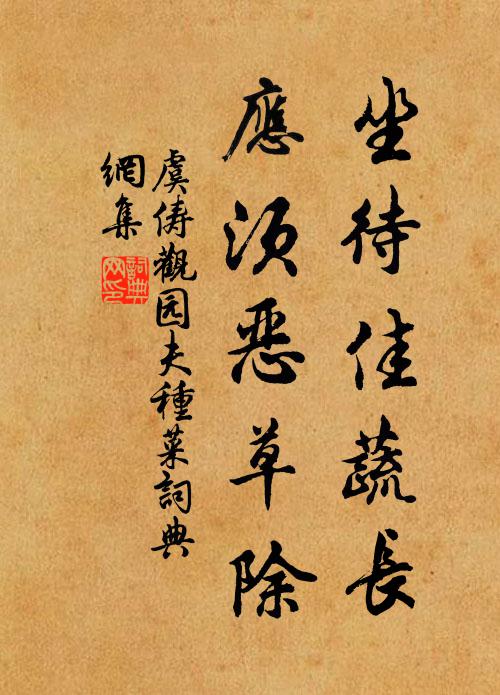 坐待佳蔬長
應須惡草除
虞儔觀园夫種菜詞典
網集
詞典
网印